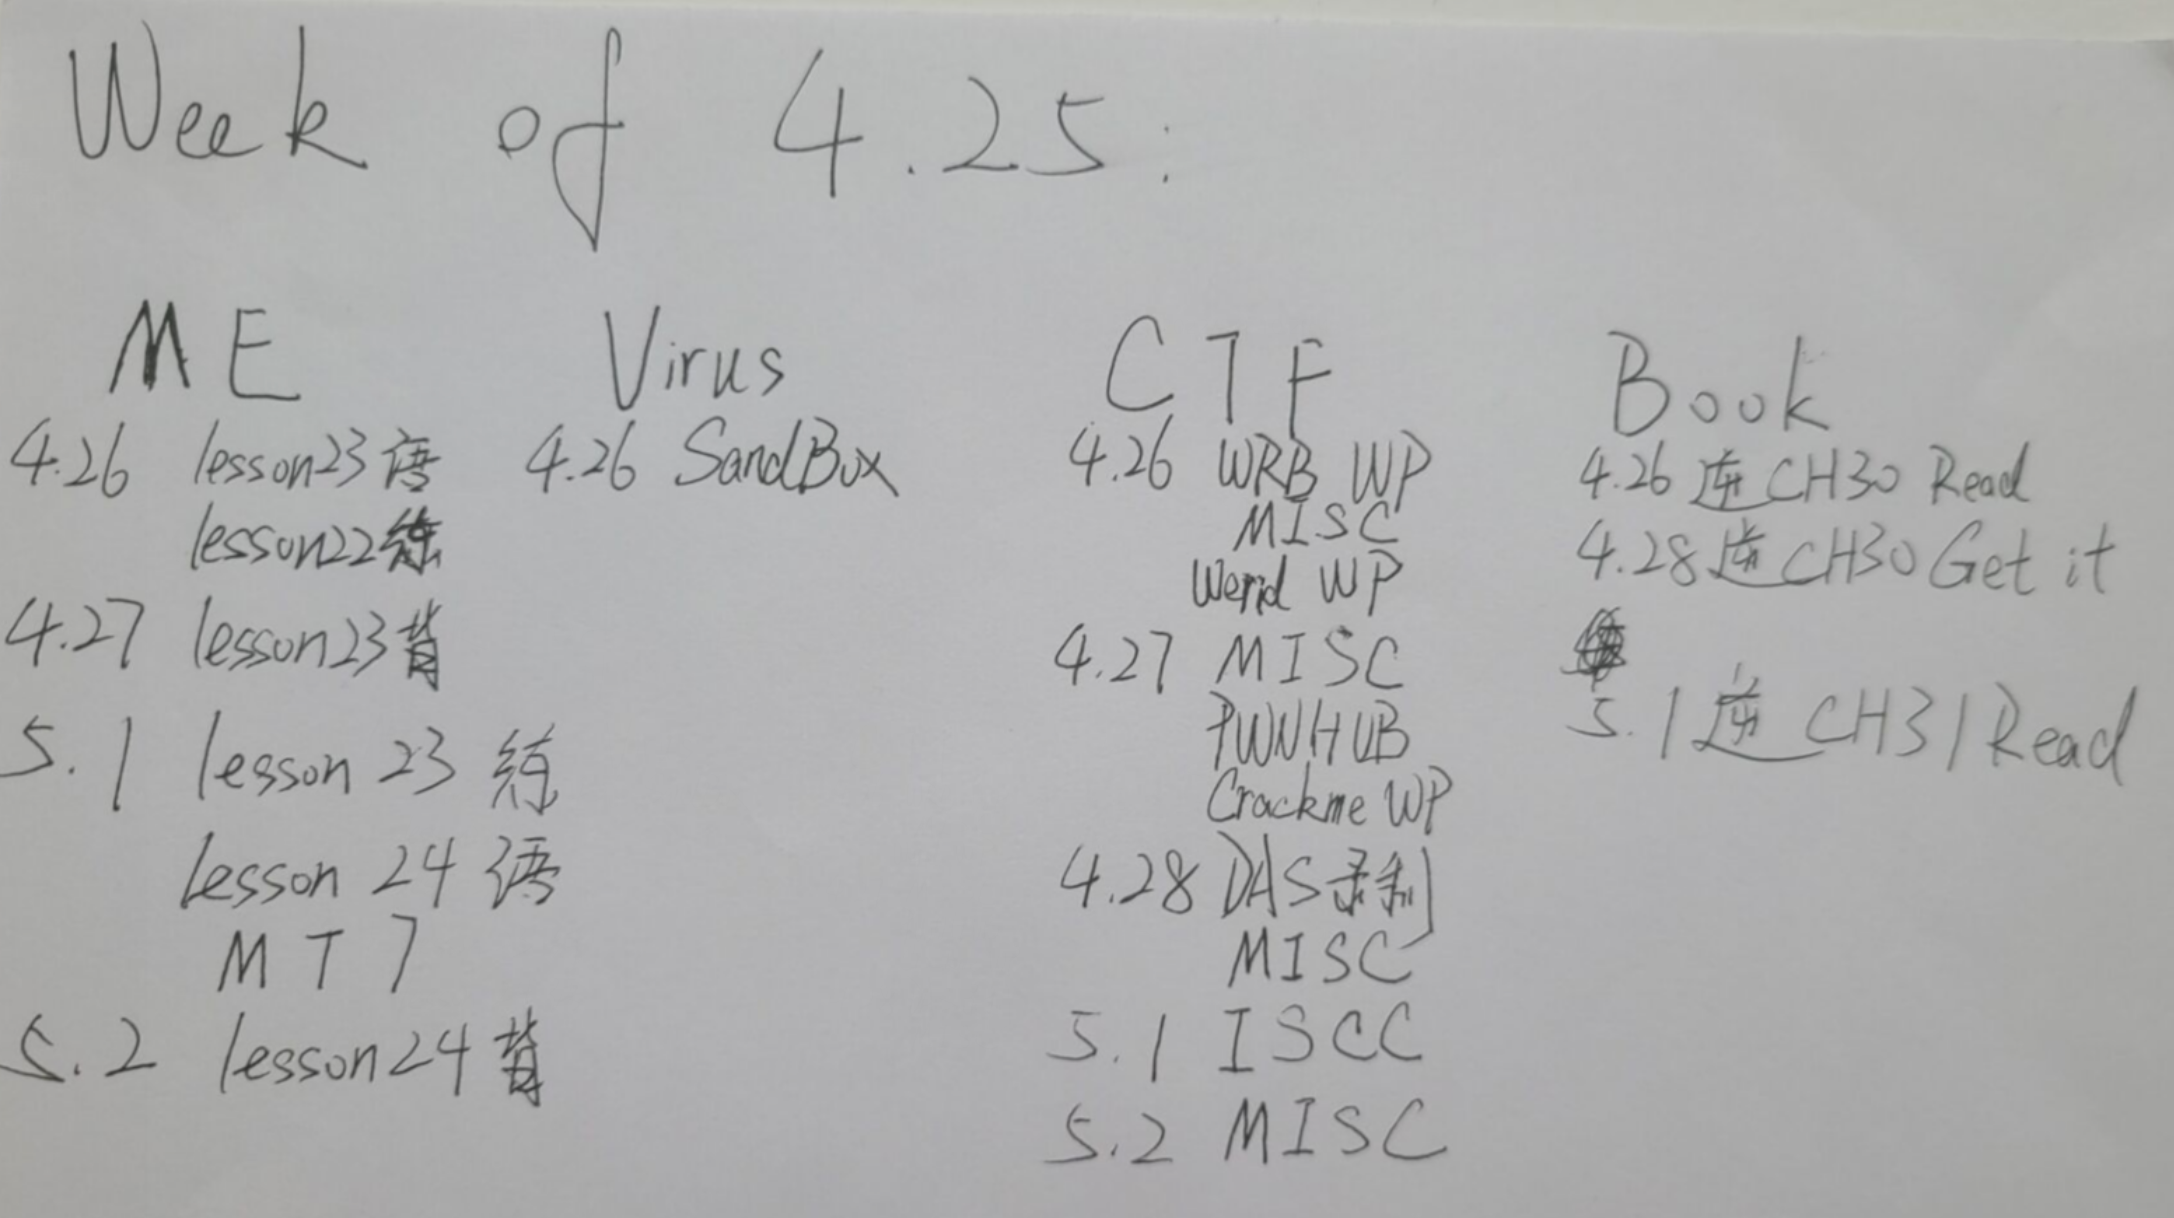 Week of 4.25:
ME
4.26 lesson23 语
lesson22 练
4.27 lesson23 背
5.1 lesson 23 练
lesson 24 语
MT7
5.2 lesson24 背
Virus
4.26 SandBox
CTF
4.26 WRB WP
MISC
Werid WP
4.27 MISC
PWNHUB
Crackme WP
4.28 DAS录制
MISC
5.1 ISCC
5.2 MISC
Book
4.26 逆CH30 Read
4.28 逆CH30 Get it
5.1 逆CH31 Read